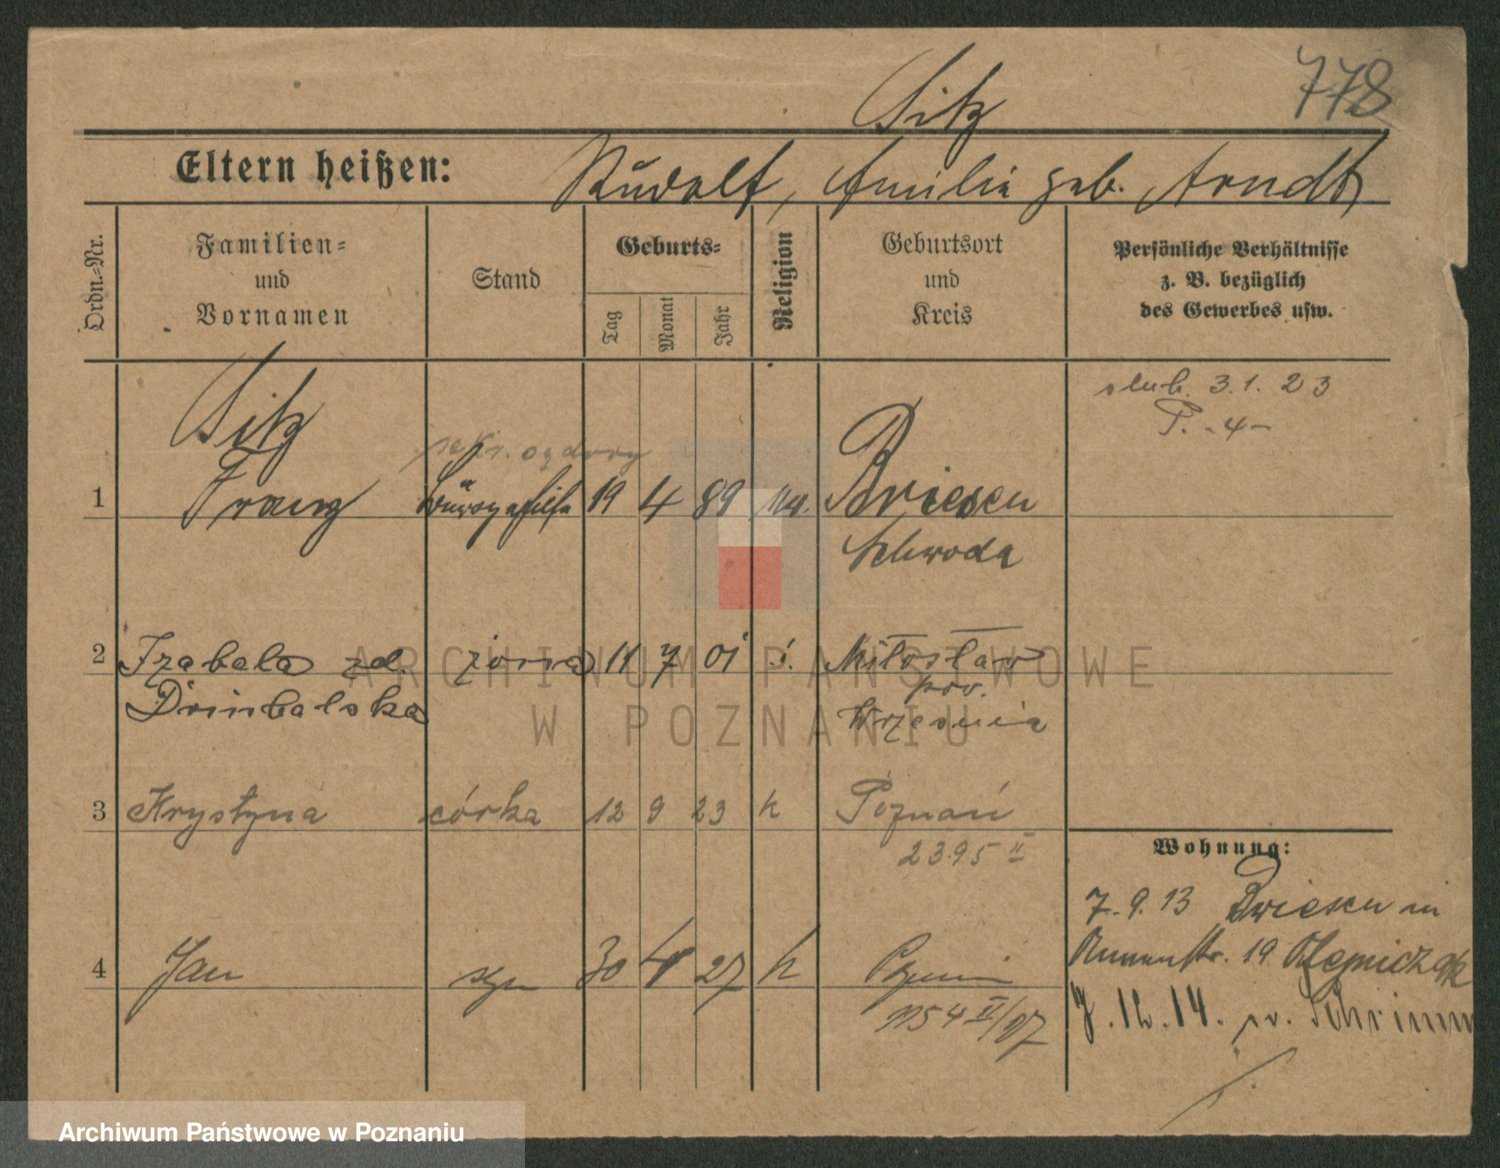 778
Sitz
Eltern heißen: Rudolf, Emilie geb. Arndt
Ordn.-Nr.
Familien-
und
Vornamen
Stand
Geburts-
Tag
Monat
Jahr
Religion
Geburtsort
und
Kreis
Persönliche Verhältnisse
z. B. bezüglich
des Gewerbes usw.
ślub. 3.1.23
P. -4-
Sitz
1 Franz Bürogehilfe 19 4 89 Briesen
Schroda
2 Izabela zd. żona 11 7 01 Miłosław
Drinbalska pow.
Września
3 Krystyna córka 12 9 23 k Poznań
2395 II
4 Jan syn 30 4 27 k Poznań
II/27
Wohnung:
7.9.13 Briesen in
19
7.12.14. n. Schrimm
ARCHIWUM PAŃSTWOWE
W POZNANIU
Archiwum Państwowe w Poznaniu